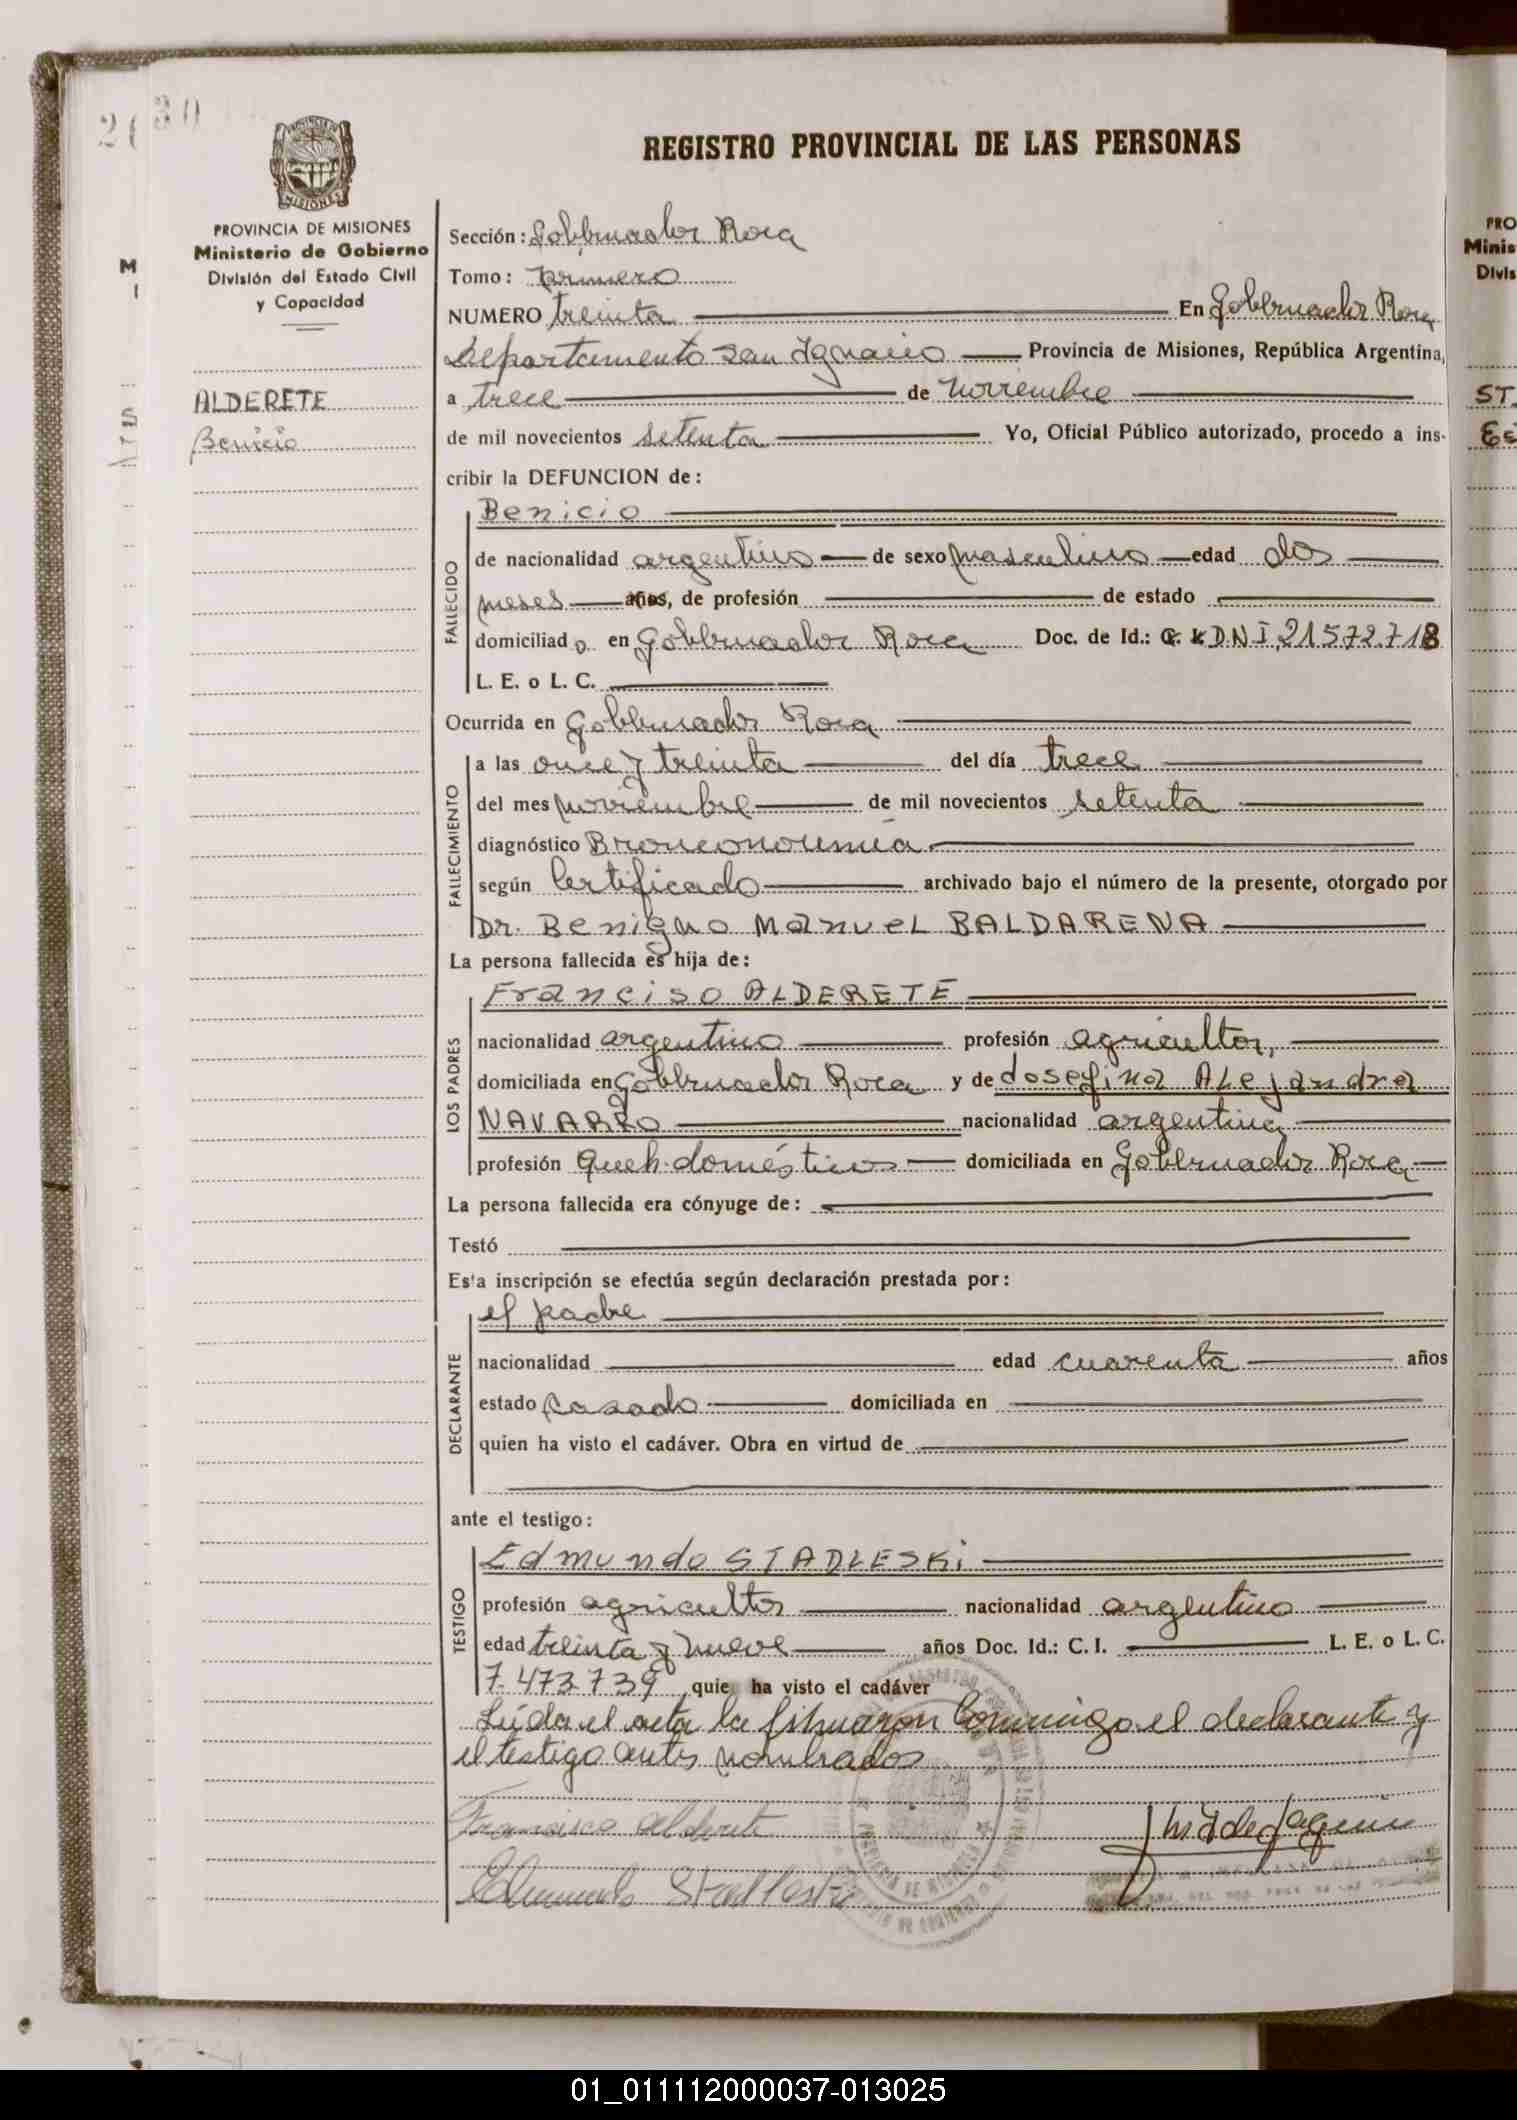 30
REGISTRO PROVINCIAL DE LAS PERSONAS
PROVINCIA DE MISIONES
Ministerio de Gobierno
División del Estado Civil
y Capacidad
ALDERETE
Benicio
Sección: Gobernador Roca
Tomo: primero
NUMERO treinta En Gobernador Roca
Departamento San Ignacio Provincia de Misiones, República Argentina,
a trece de noviembre
de mil novecientos setenta Yo, Oficial Público autorizado, procedo a ins-
cribir la DEFUNCION de:
Benicio
FALLECIDO
de nacionalidad argentino de sexo masculino edad dos
meses años, de profesión de estado
domiciliado en Gobernador Roca Doc. de Id.: D.N.I. 21572.718
L. E. o L. C.
Ocurrida en Gobernador Roca
FALLECIMIENTO
a las once y treinta del día trece
del mes noviembre de mil novecientos setenta
diagnóstico Bronconoumía
según Certificado archivado bajo el número de la presente, otorgado por
Dr. Benigno Manuel BALDARENA
La persona fallecida es hija de:
LOS PADRES
Franciso ALDERETE
nacionalidad argentino profesión agricultor,
domiciliada en Gobernador Roca y de Josefina Alejandra
NAVARRO nacionalidad argentina
profesión Queh. domésticos domiciliada en Gobernador Roca
La persona fallecida era cónyuge de:
Testó
Esta inscripción se efectúa según declaración prestada por:
DECLARANTE
el padre
nacionalidad edad cuarenta años
estado casado domiciliada en
quien ha visto el cadáver. Obra en virtud de
ante el testigo:
TESTIGO
Edmundo STADLESKi
profesión agricultor nacionalidad argentino
edad treinta y nueve años Doc. Id.: C. I. L. E. o L. C.
7.473.739 quie ha visto el cadáver
Leída el acta la firmaron conmigo el declarante y
el testigo antes nombrados
Francisco Alderete
Edmundo
01_011112000037-013025